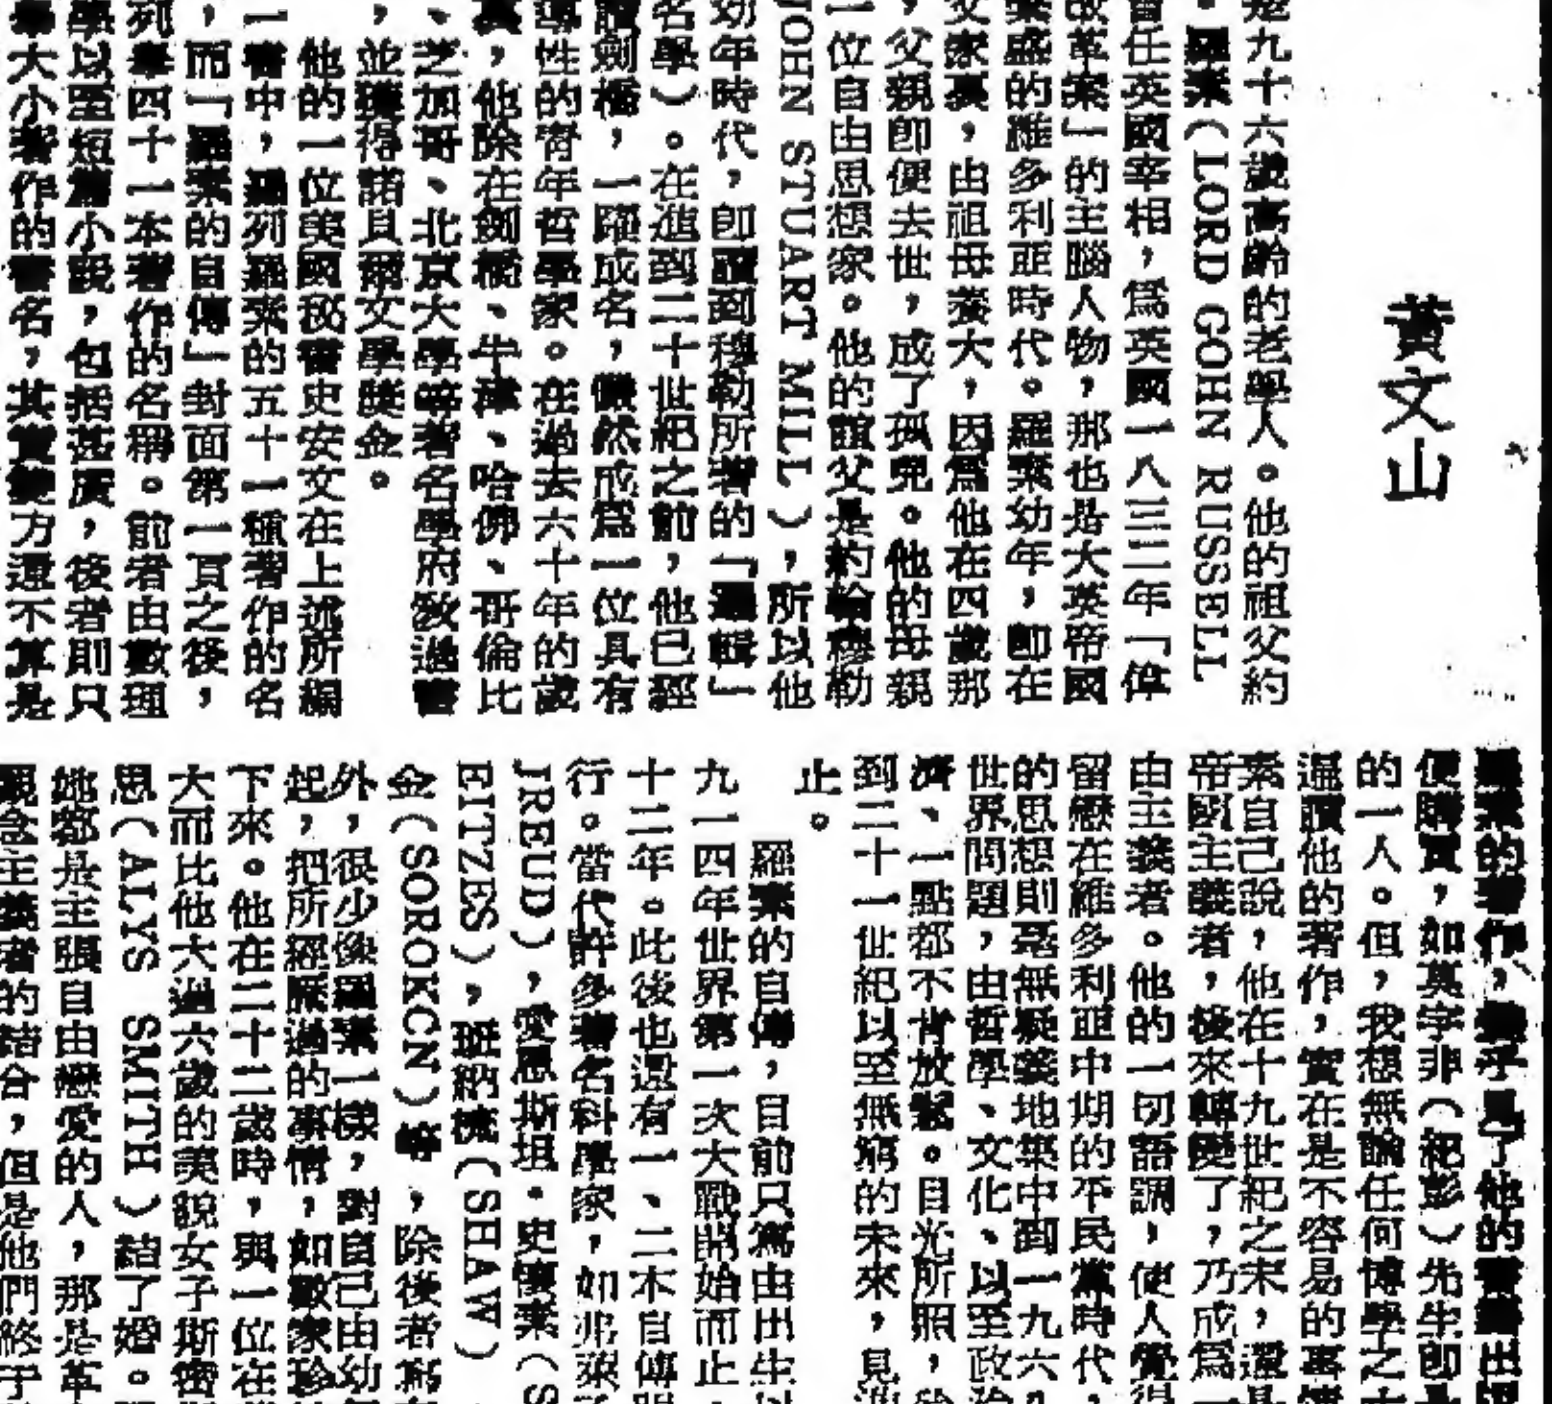 黃文山
是九十六歲高齡的老學人。他的祖父約
・羅素（LORD GOHN RUSSELL
曾任英國宰相，爲英國一八三二年「偉
改革案」的主腦人物，那也是大英帝國
業盛的維多利亞時代。羅素幼年，卽在
文家裏，由祖母養大，因爲他在四歲那
，父親卽便去世，成了孤兒。他的母親
一位自由思想家。他的誼父是約翰穆勒
JOHN STUART MILL），所以他
幼年時代，卽讀到穆勒所著的「邏輯」
名學）。在進到二十世紀之前，他已經
讀劍橋，一躍成名，儼然成爲一位具有
導性的青年哲學家。在過去六十年的歲
裏，他除在劍橋、牛津、哈佛、哥倫比
、芝加哥、北京大學等著名學府敎過書
，並獲得諾貝爾文學獎金。
他的一位英國秘書史安文在上述所編
一書中，羅列羅素的五十一種著作的名
，而「羅素的自傳」封面第一頁之後，
列舉四十一本著作的名稱。前者由數理
學以至短篇小說，包括甚廣，後者則只
舉大小著作的書名，其實雙方還不算是
羅素的著作，幾乎見了他的書籍出版
便購買，如莫字非（紀彭）先生卽是
的一人。但，我想無論任何博學之士
遍讀他的著作，實在是不容易的事情
素自己說，他在十九世紀之末，還是
帝國主義者，後來轉變了，乃成爲一
由主義者。他的一切語調，使人覺得
留戀在維多利亞中期的平民黨時代，
的思想則毫無疑義地集中到一九六八
世界問題，由哲學、文化、以至政治
濟、一點都不肯放鬆。目光所照，
到二十一世紀以至無窮的未來，見
止。
羅素的自傳，目前只寫由出生以
九一四年世界第一次大戰開始而止
十二年。此後也還有一、二本自傳
行。當代許多著名科學家，如
JREUD），愛恩斯坦・史懷素（S
EITZES），班納梳（SHAW）
金（SOROKCN）等，除後者寫
外，很少像羅素一樣，對自己由幼
起，把所經歷過的事情，如數家珍
下來。他在二十二歲時，與一位在
大而比他大過六歲的美貌女子斯密
思（ALYS SMITH）結了婚。
她都是主張自由戀愛的人，那是革
觀念主義者的結合，但是他們終于